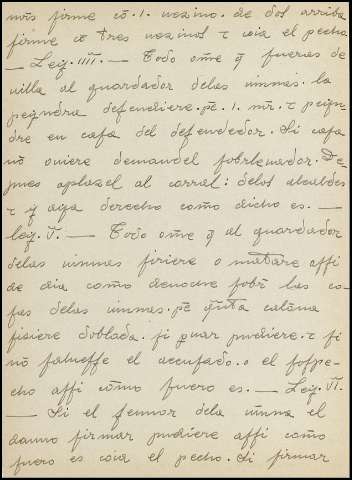 mrs firme cõ .1. uezino. de dos arriba
firme cõ tres uezinos τ coia el pecho
— Ley. IIII. — Todo ome q̃ fueras de
uilla al guardador delas uinnas. la
peyndra defendiere. pe. 1. mr. τ peyn-
dre en casa del defendedor. Si casa
nõ ouiere demandel sobrleuador. De-
pues aplazel al corral: delos alcaldes
τ y aya derecho como dicho es. —
Ley. V. — Todo ome q̃ al guardador
delas uinnas firiere o matare assi
de dia como denoche sobr las co-
sas delas uinnas. pe q̃nta calona
fiziere doblada. si puar pudiere. τ si
nõ saluesse el accusado. o el sospe-
cho assi cõmo fuero es. — Ley. VI.
— Si el sennor dela uinna el
danno firmar pudiere assi como
fuero es coia el pecho. Si firmar